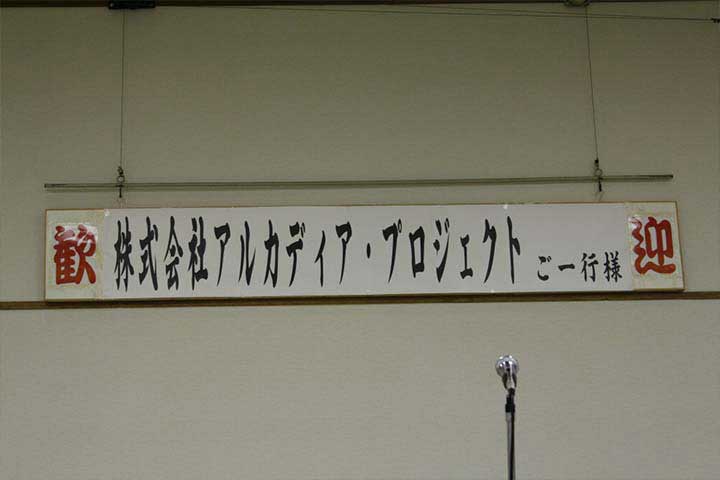 歓 株式会社アルカディア・プロジェクト ご一行様 迎